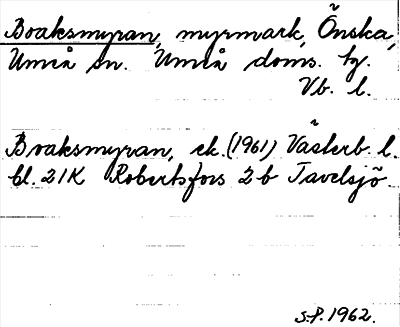 Boaksmyran, myrmark, Önska,
Umeå sn. Umeå doms. hg.
Vb. l.
Boaksmyran, ek. (1961) Västerb. l.
bl. 21K Robertsfors 2b Tavelsjö.
S.P. 1962.